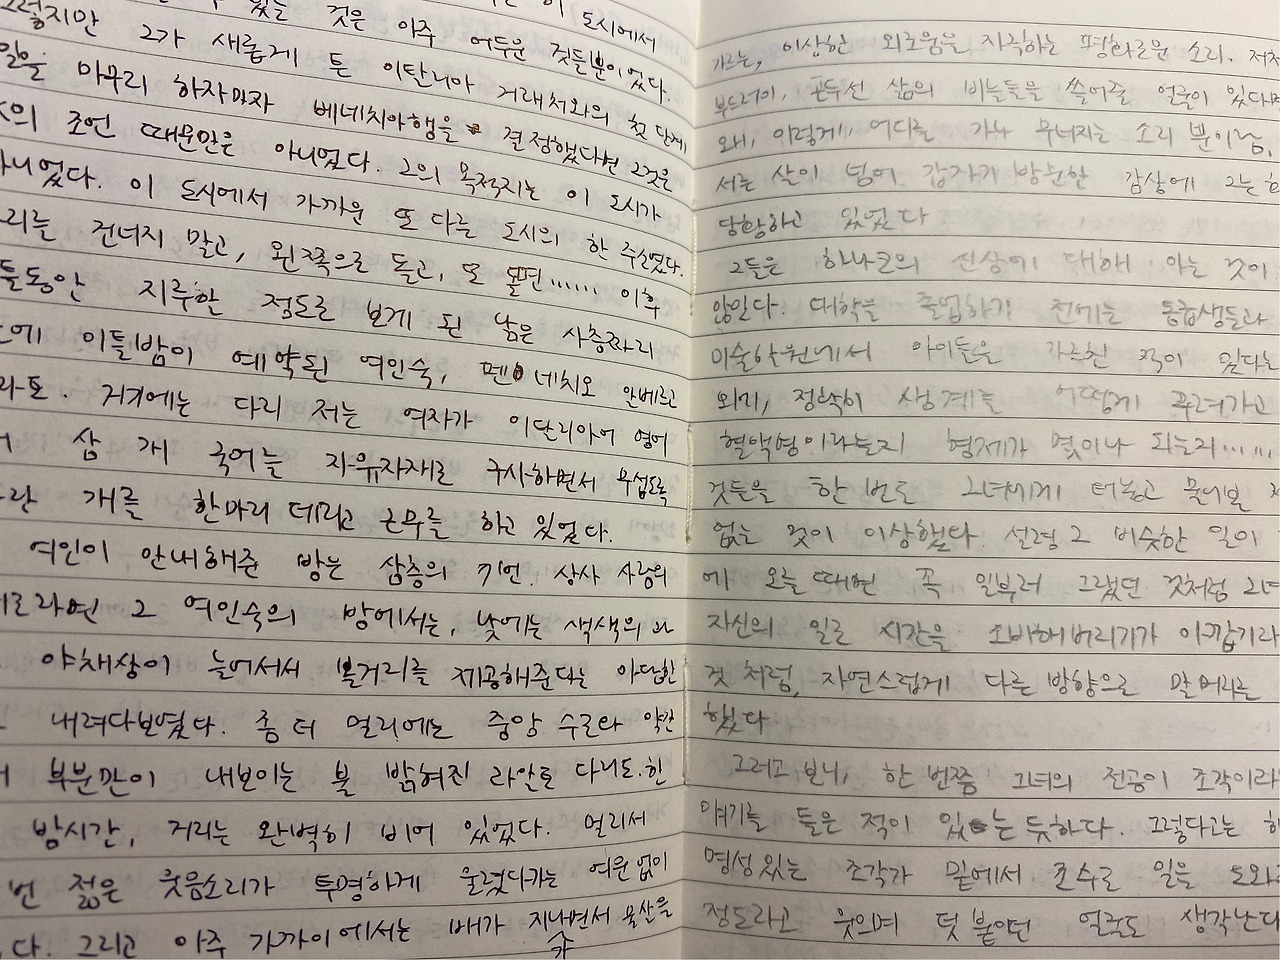 있는 것은 아주 어두운 것들뿐이었다.
그렇지만 그가 새롭게 튼 이탄니아 거래처와의 첫 단계
일을 마무리 하자마자 베네치아행을 결정했다면 그것은
의 조언 때문만은 아니었다. 그의 목적지는 이 도시가
아니었다. 이 도시에서 가까운 또 다른 도시의 한 주소였다.
리를 건너지 말고, 왼쪽으로 돌고, 또 돌면...... 이후
들동안 지루한 정도로 보게 된 낡은 사층짜리
에 이틀밤이 예약된 여인숙, 멘 네치오 안베르고
라는. 거기에는 다리 저는 여자가 이탈리아어 영어
삼 개 국어를 자유자재로 구사하면서 무섭도록
개를 한마리 데리고 근무를 하고 있었다.
여인이 안내해준 방은 삼층의 기번. 상사 사람의
라면 그 여인숙의 방에서는, 낮에는 색색의 과
야채상이 늘어서서 볼거리를 제공해준다는 아담한
내려다보였다. 좀 더 멀리에는 중앙 수로와 약간
부분만이 내보이는 불 밝혀진 리알토 다리도. 한
밤시간, 거리는 완벽히 비어 있었다. 멀리서
번 젊은 웃음소리가 투명하게 울렸다가는 여운 없이
다. 그리고 아주 가까이에서는 배가 지나면서 물살을
가르는, 이상한 외로움을 자극하는 평화로운 소리. 저처
부드러이, 곤두선 삶의 비늘들을 쓸어줄 얼굴이 있다면
왜, 이렇게, 어디를 가나 무너지는 소리 뿐이냐.
서른 살이 넘어 갑자기 방문한 감상에 그는 한
당황하고 있었다
그들은 하나코의 신상에 대해 아는 것이
않았다. 대학을 졸업하기 전에는 동급생들과
미술학원에서 아이들을 가르친 적이 있다는
외에, 정확히 생계를 어떻게 꾸려가고
혈액형이라든지 형제가 몇이나 되는지......
것들을 한 번도 그녀에게 터놓고 물어본 적
없는 것이 이상했다. 설령 그 비슷한 일이
에 오를 때면 꼭 일부러 그랬던 것처럼 그녀
자신의 일로 시간을 소비해버리기가 아깝기라
것처럼, 자연스럽게 다른 방향으로 말머리를
했다
그러고 보니, 한 번쯤 그녀의 전공이 조각이라
얘기를 들은 적이 있는 듯하다. 그렇다고는 하
명성있는 조각가 밑에서 조수로 일을 도와
정도라고 웃으며 덧붙이던 얼굴도 생각난다